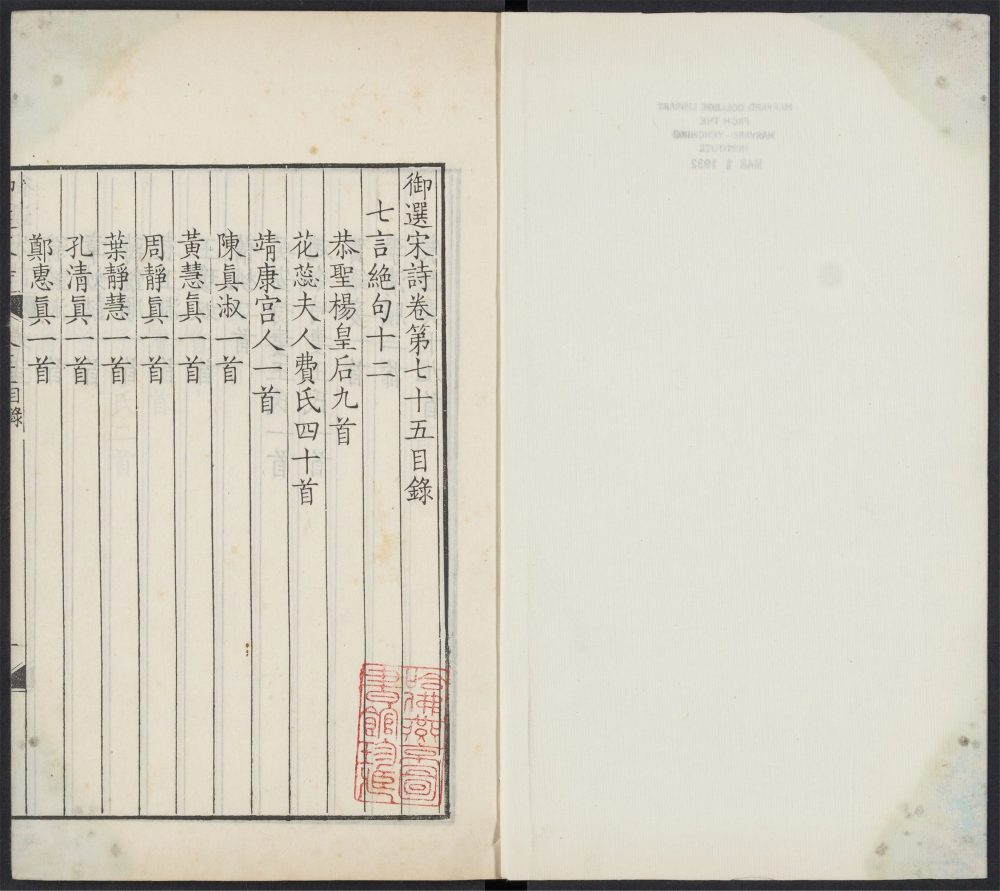 御選宋詩卷第七十五目錄
七言絶句十二
恭聖楊皇后九首
花蕊夫人費氏四十首
靖康宮人一首
陳眞淑一首
黃慧眞一首
周靜眞一首
葉靜慧一首
孔清眞一首
鄭惠眞一首
目錄
哈佛燕京圖
書館珍藏
HARVARD COLLEGE LIBRARY
FROM THE
HARVARD-YENCHING
INSTITUTE
MAR 1 1932